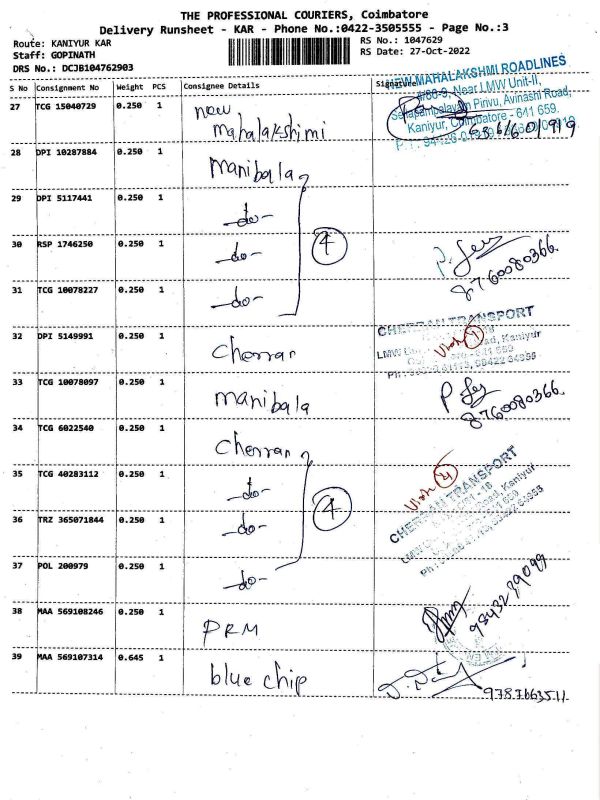 THE PROFESSIONAL COURIERS, Coimbatore
Delivery Runsheet - KAR - Phone No.:0422-3505555 - Page No.:3
Route: KANIYUR KAR
RS No.: 1047629
Staff: GOPINATH
RS Date: 27-Oct-2022
DRS No.: DCJB104762903
S No Consignment No Weight PCS Consignee Details Signature
NEW MAHALAKSHMI ROADLINES
Near LMW Unit-II,
Pirivu, Avinashi Road,
Kaniyur, Coimbatore - 641 659.
27 TCG 15040729 0.250 1 new
mahalakshimi
28 DPI 10287884 0.250 1 manibala
29 DPI 5117441 0.250 1 -do-
4
30 RSP 1746250 0.250 1 -do-
8760080366
31 TCG 10078227 0.250 1 -do-
CHERRAN TRANSPORT
32 DPI 5149991 0.250 1 cherran
33 TCG 10078097 0.250 1 manibala
8760080366
34 TCG 6022540 0.250 1 cherran
CHERRAN TRANSPORT
35 TCG 40283112 0.250 1 -do-
4
36 TRZ 365071844 0.250 1 -do-
37 POL 200979 0.250 1 -do-
38 MAA 569108246 0.250 1 PRM
9843289099
39 MAA 569107314 0.645 1 blue chip
9787663511